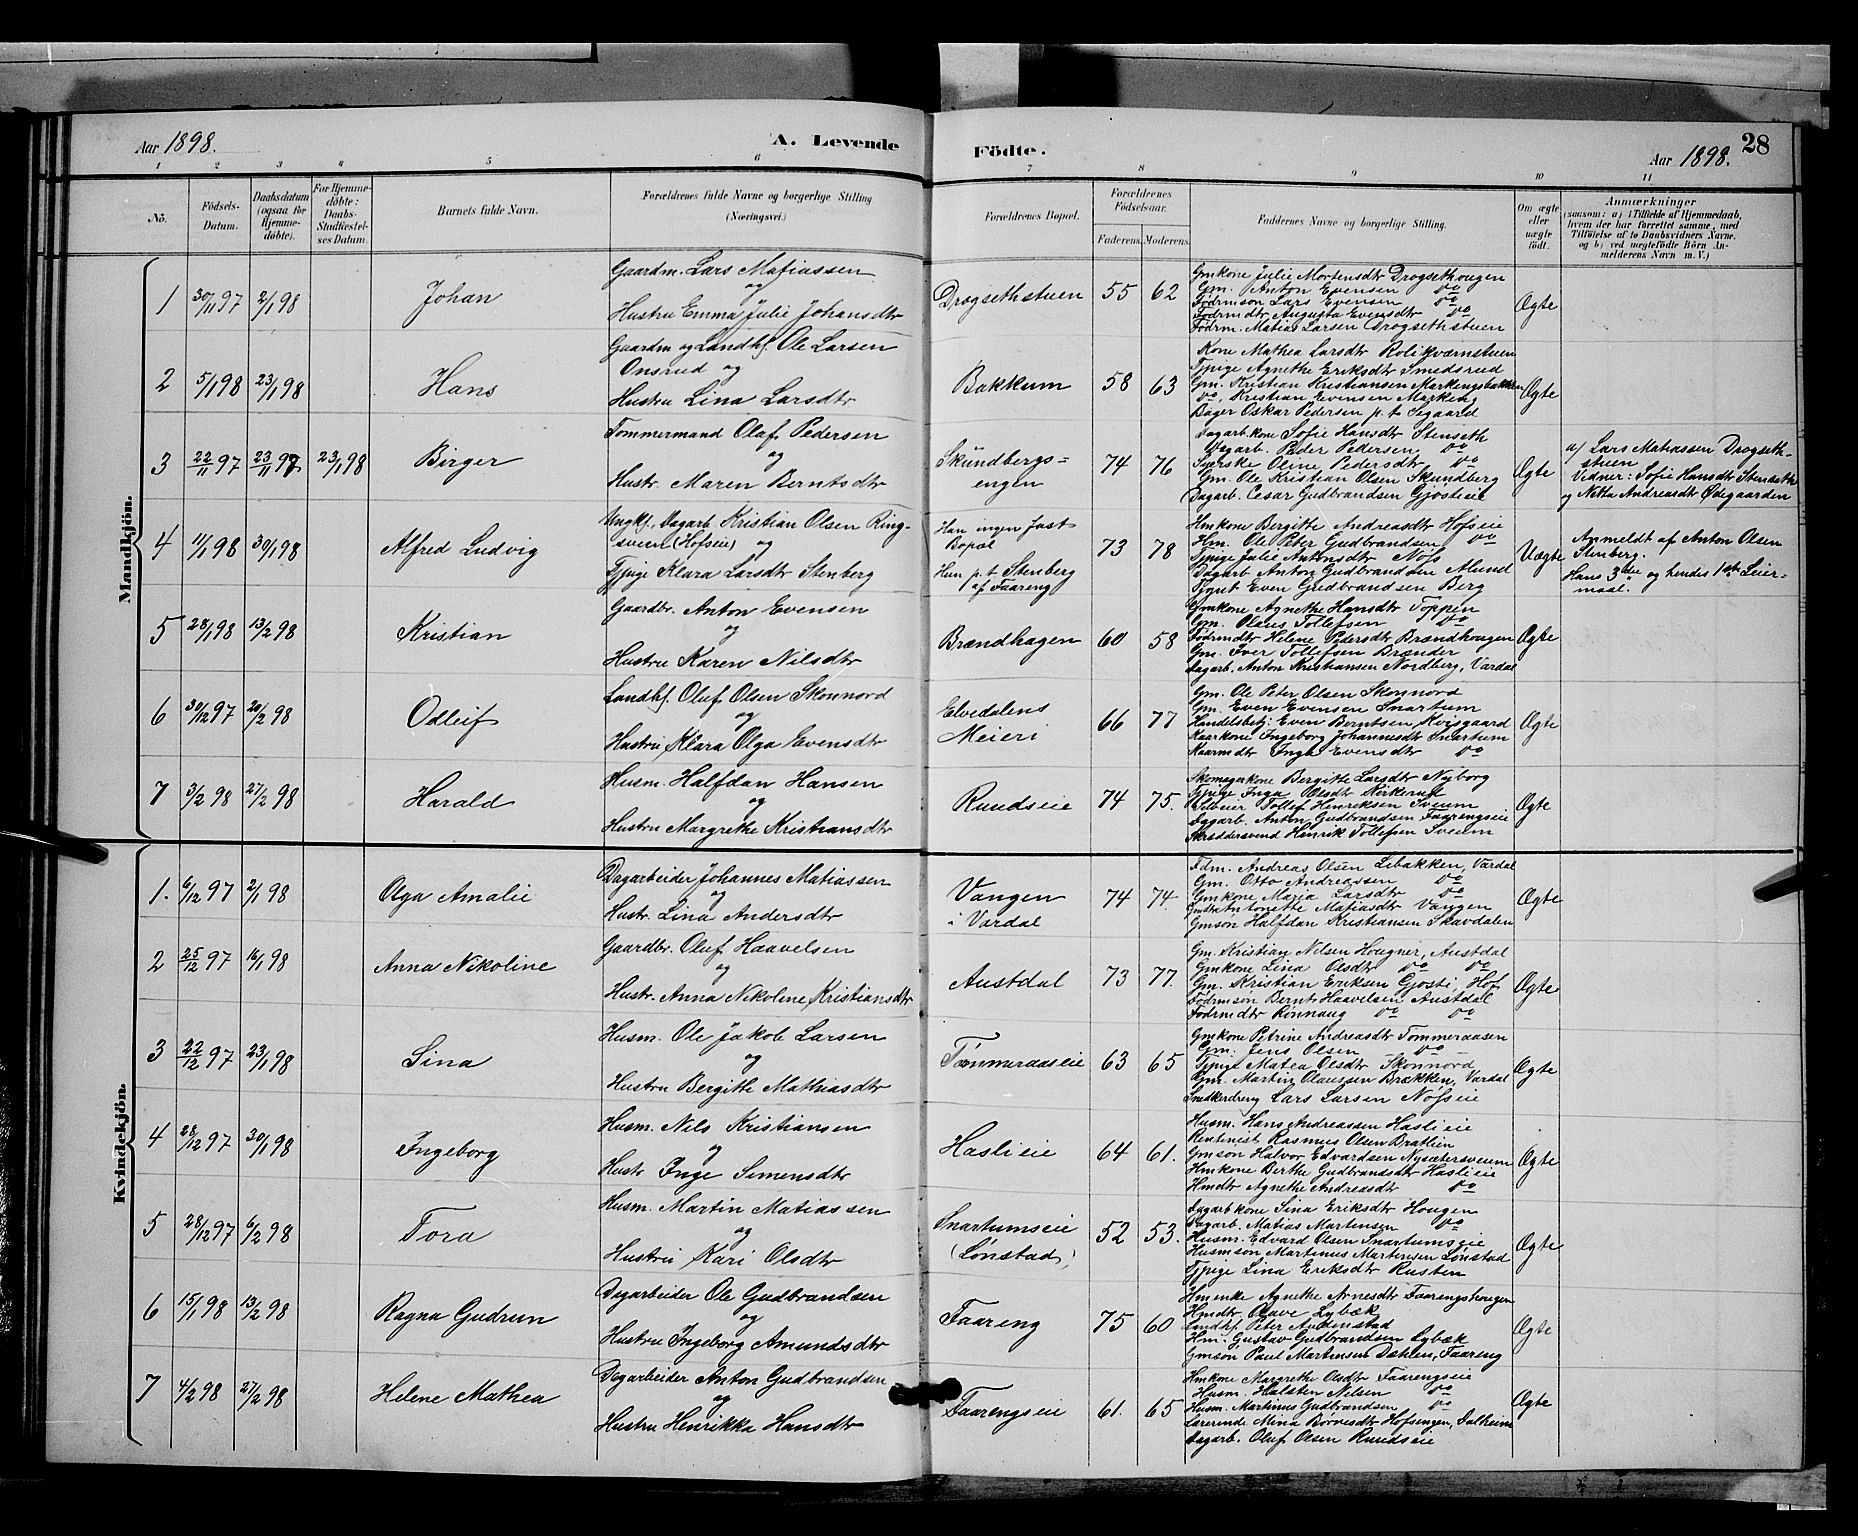 Aar 1898. A. Levende Födte. Aar 1898. 28
1 2 3 4 5 6 7 8 9 10 11
No. Födsels-Datum. Daabsdatum (ogsaa for Hjemmedöbte). For Hjemmedöbte: Daabs-Stadfestelses Datum. Barnets fulde Navn. Forældrenes fulde Navne og borgerlige Stilling (Næringsvei.) Forældrenes Bopæl. Forældrenes Födselsaar. Faderens. Moderens. Faddernes Navne og borgerlige Stilling. Om ægte eller uægte födt. Anmærkninger (saasom: a) i Tilfælde af Hjemmedaab, hvem der har forrettet samme, med Tilföielse af to Daabsvidners Navne. og b) ved uægtefödte Börn Anmelderens Navn m. V.)
Mandkjön.
1 30/11 97 2/1 98 Johan
Gaardm. Lars Mafiassen
og
Hustru Emma Julie Johansdtr
Drogsethstuen 55 62
Gmkone Julie Mortensdtr Drogsethougen
Gm. Anton Evensen do
Födrmsön Lars Evensen do
Födrmdtr Augusta Evensdtr do
Födrm. Matias Larsen Drogsethstuen
Ægte
2 5/1 98 23/1 98 Hans
Gaardm og Landhf. Ole Larsen
Onsrud og
Hustru Lina Larsdtr
Bakkum 58 63
Kone Mathea Larsdtr Rolikværnstuen
Tjpige Agnethe Eriksdtr Smedsrud
Gm. Kristian Kristiansen Markengsbakken
do, Kristian Evensen Markeng
Bager Oskar Pedersen p. t. Segaard
Ægte
3 22/11 97 23/11 97 23/1 98 Birger
Tommermand Olaf Pedersen
og
Hustr. Maren Berntsdtr
Skundbergs=
engen 74 76
Dagarb.kone Sofie Hansdtr Stenseth
Dagarb. Peder Pedersen do
Syerske Oline Pedersdtr do
Gm. Ole Kristian Olsen Skundberg
Dagarb. Cesar Gudbrandsen Gjostieie
Ægte
a/ Lars Matiassen Drogseth-
stuen
Vidner: Sofie Hansdtr Stenseth
og Netta Andreasdtr Ødegaarden
4 11/1 98 30/1 98 Alfred Ludvig
Ungkf., Dagarb Kristian Olsen Ring-
sveen (Hofseie) og
Tjpige Klara Larsdtr Stenberg
Han ingen fast
Bopæl
Hun p. t Stenberg
af Faareng 73 78
Hmkone Bergitte Andreasdtr Hofseie
Hm. Ole Peter Gudbrandsen do
Tjpige Julie Antonsdtr Nöss
Dagarb Anton Gudbrandsen Alund
Tjgut Even Gudbrandsen Berg
Uægte
Anmeldt af Anton Olsen
Stenberg.
Hans 3die og hendes 1ste Leier-
maal.
5 28/1 98 13/2 98 Kristian
Gaardbr. Anton Evensen
og
Hustru Karen Nilsdtr
Brændhagen 60 58
Gmkone Agnethe Hansdtr Toppen
Gm. Olaus Tollefsen do
Födrmdtr Helene Pedersdtr Brændhougen
Gm. Iver Tollefsen Brænder
Dagarb. Anton Kristiansen Nordberg, Vardal
Ægte
6 30/12 97 20/2 98 Odleif
Landhf. Oluf Olsen Skonnord
og
Hustru Klara Olga Evensdtr
Elvedalens
Meieri 66 77
Gm. Ole Peter Olsen Skonnord
Gm. Even Evensen Snartum
Handelsbetj. Even Berntsen Kvisgaard
Kaarkone Ingeborg Johannesdtr Snartum
Kaarmdtr Inga Evensdtr do
Ægte
7 3/2 98 27/2 98 Harald
Husm. Halfdan Hansen
og
Hustru Margrethe Kristiansdtr
Ruudseie 74 75.
Skomagerkone Bergitte Larsdtr Nyborg
Tjpige Inga Olsdtr Kirkerud
Tollef Henriksen Sveum
Dagarb. Anton Gudbrandsen Faarengseie
Skræddersvend Henrik Tollefsen Sveum
Ægte
Kvindekjön.
1. 6/12 97 2/1 98 Olga Amalie
Dagarbeider Johannes Matiassen
og
Hustr. Lina Andersdtr
Vangen
i Vardal 74 74.
Fdm. Andreas Olsen Libakken, Vardal
Gm. Otto Andreassen do
Gmkone Maria Larsdtr do
Gmdtr Antonette Matiasdtr Vangen
Gmsön Halfdan Kristiansen Skavdalen
Ægte
2 25/12 97 16/1 98 Anna Nikoline
Gaardbr. Oluf Haavelsen
og
Hustr. Anna Nikoline Kristiansdtr
Austdal 73 77.
Gm. Kristian Nelsen Hougner, Austdal
Gmkone Lina Olsdtr do do
Gm. Kristian Eriksen Gjosti, Hof
Födrmsön Bernt Haavelsen Austdal
Födrmdtr Rönnaug do do
Ægte
3 22/12 97 23/1 98 Sina
Husm. Ole Jakob Larsen
og
Hustru Bergithe Mathiasdtr
Tömmeraaseie 63 65
Gmkone Petrine Andreasdtr Tommeraasen
Gm. Jens Olsen do
Tjpige Matea Olsdtr Skonnord
Gm. Martin Olaussen Brækken, Vardal
Snedkerdreng Lars Larsen Nöfseie
Ægte
4 28/12 97 30/1 98 Ingeborg
Husm. Nils Kristiansen
og
Hustr Inge Simensdtr
Haslieie 64 61.
Husm. Hans Andreassen Haslieie
Rentenist Rasmus Olsen Bratlien
Gmsön Halvor Edvardsen Nysætersveum
Hmkone Berthe Gudbrandsdtr Haslieie
Hmdtr Agnethe Andreasdtr do
Ægte
5 28/12 97 6/2 98 Tora
Husm. Martin Matiassen
og
Hustru Kari Olsdtr
Snartumseie
(Lönstad) 52 53.
Dagarbkone Sina Eriksdtr Hougen
Dagarb. Matias Martensen do
Husm. Edvard Olsen Snartumseie
Husmsön Martinus Martensen Lönstad
Tjpige Lina Eriksdtr Rusten
Ægte
6 15/1 98 13/2 98 Ragna Gudrun
Dagarbeider Ole Gudbrandsen
og
Hustru Ingeborg Amundsdtr
Faareng 75 60
Hmenke Agnethe Arnesdtr Faarengshougen
Hmdtr. Olave Lybæk
Landhf. Peter Audenstad
Hm. Gustav Gudbrandsen Lybæk
Gmsön Paul Martinsen Dæhlen, Faareng
Ægte
7 4/2 98 27/2 98 Helene Mathea
Dagarbeider Anton Gudbrandsen
og
Hustru Henrikka Hansdtr
Faarengseie 61. 65
Hmkone Margrethe Olsdtr Faarengseie
Husm. Halsten Nelsen do
Husm. Martinus Gudbrandsen do
Lærerinde Mina Börresdtr Hofsengen, Dalheim
Dagarb. Oluf Olsen Ruudseie
Ægte